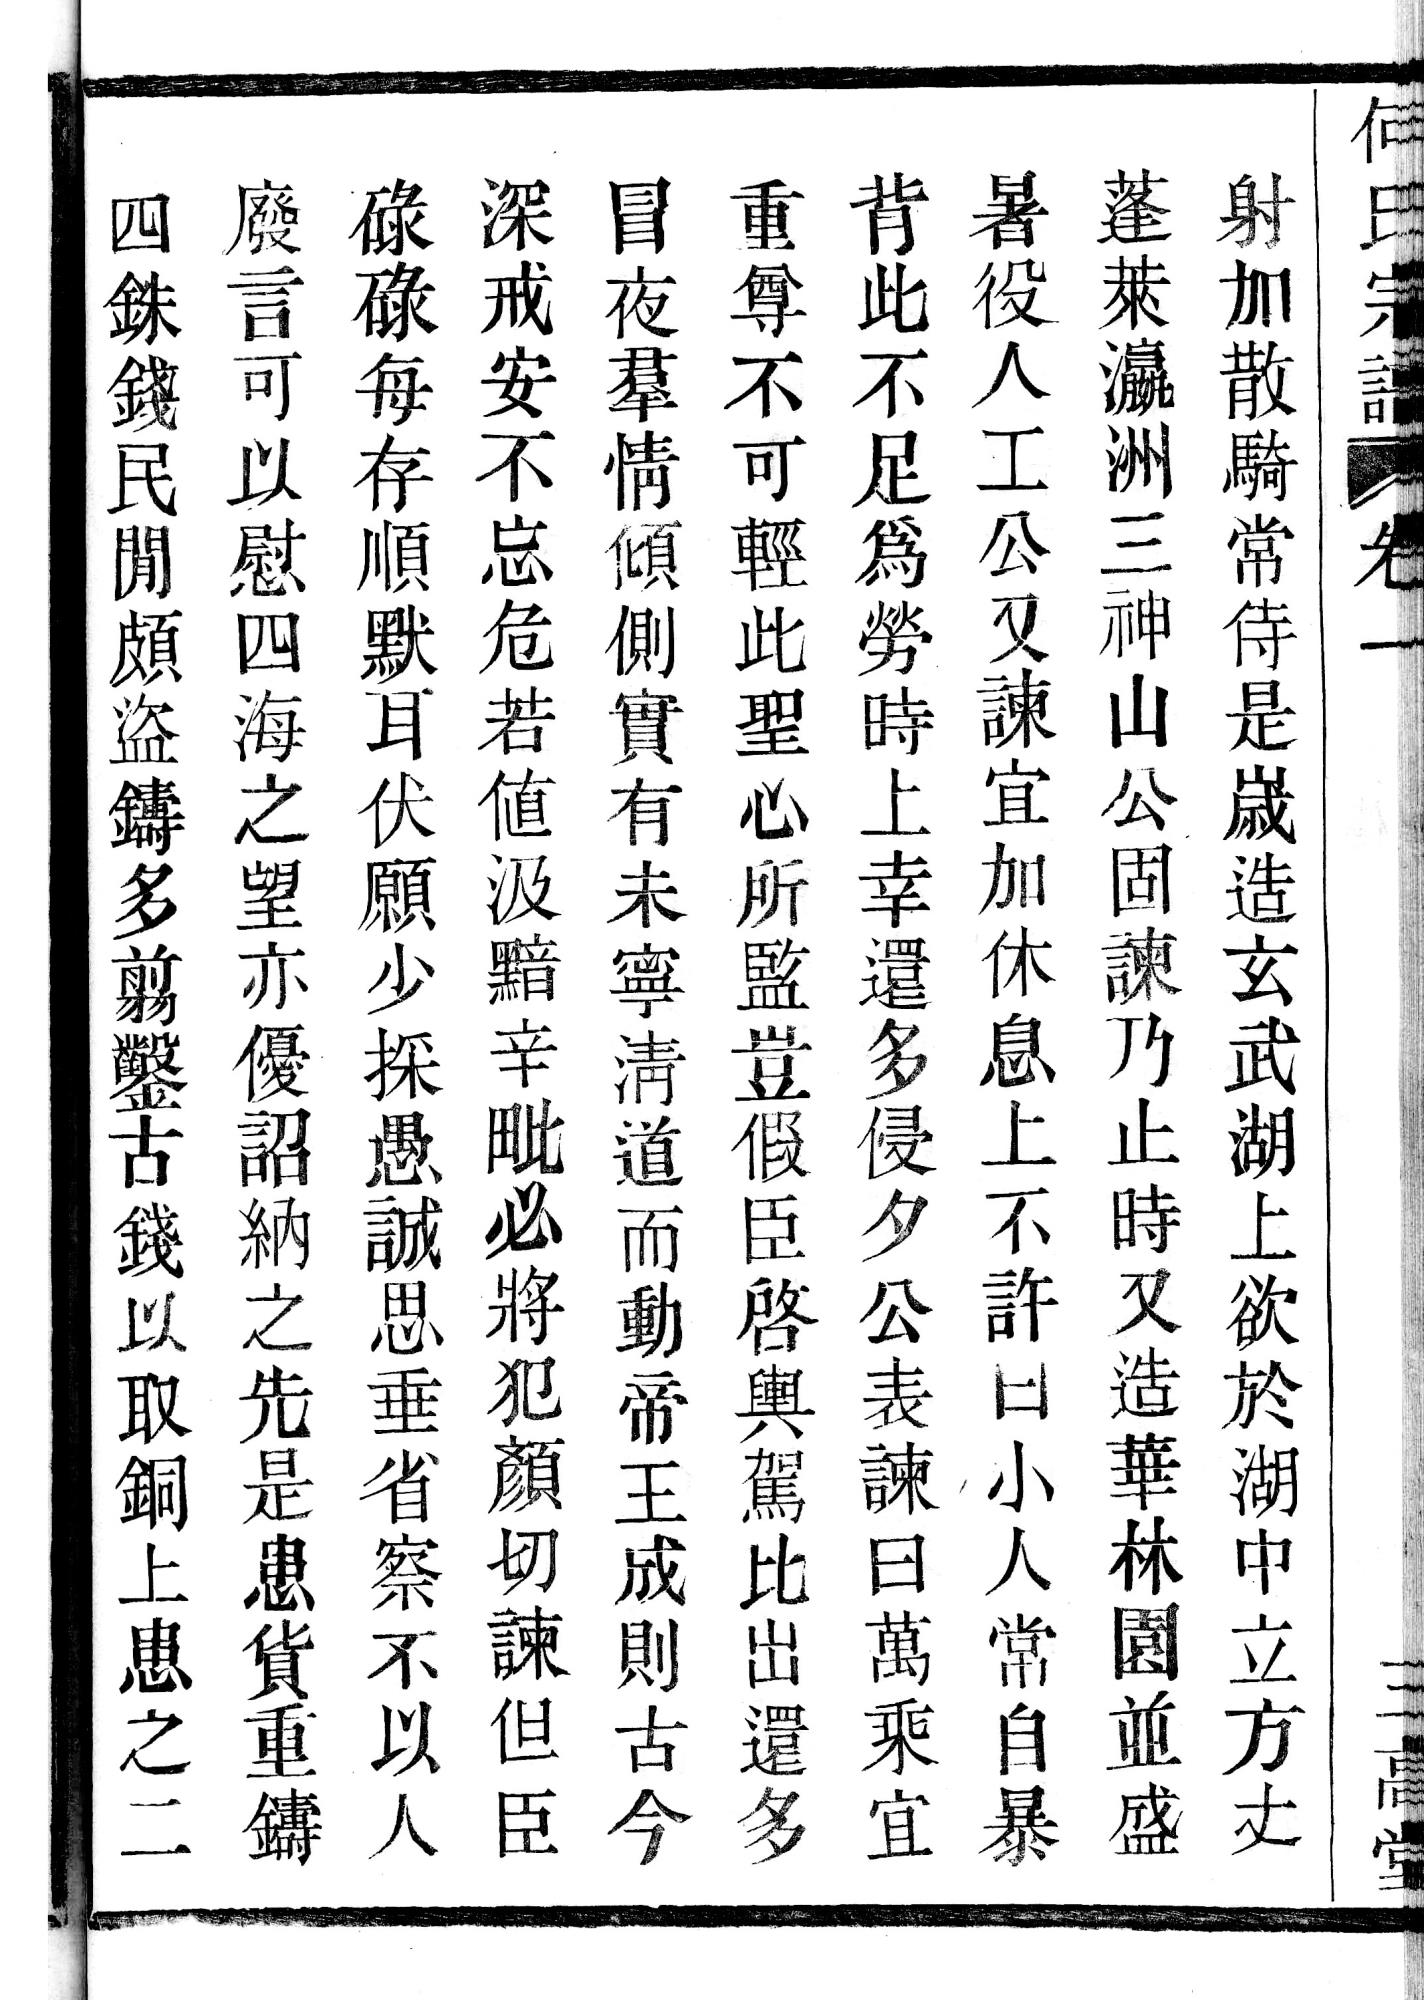 何氏宗譜 卷一 三高堂
射加散騎常侍是嵗造玄武湖上欲於湖中立方丈
蓬萊瀛洲三神山公固諫乃止時又造華林園並盛
暑役人工公又諫宜加休息上不許曰小人常自暴
背此不足爲勞時上幸還多侵夕公表諫曰萬乘宜
重尊不可輕此聖心所監豈假臣啓輿駕比出還多
冒夜羣情傾側實有未寧淸道而動帝王成則古今
深戒安不忘危若値汲黯辛毗必將犯顏切諫但臣
碌碌每存順默耳伏願少採愚誠思垂省察不以人
廢言可以慰四海之望亦優詔納之先是患貨重鑄
四銖錢民閒頗盜鑄多翦鑿古錢以取銅上患之二